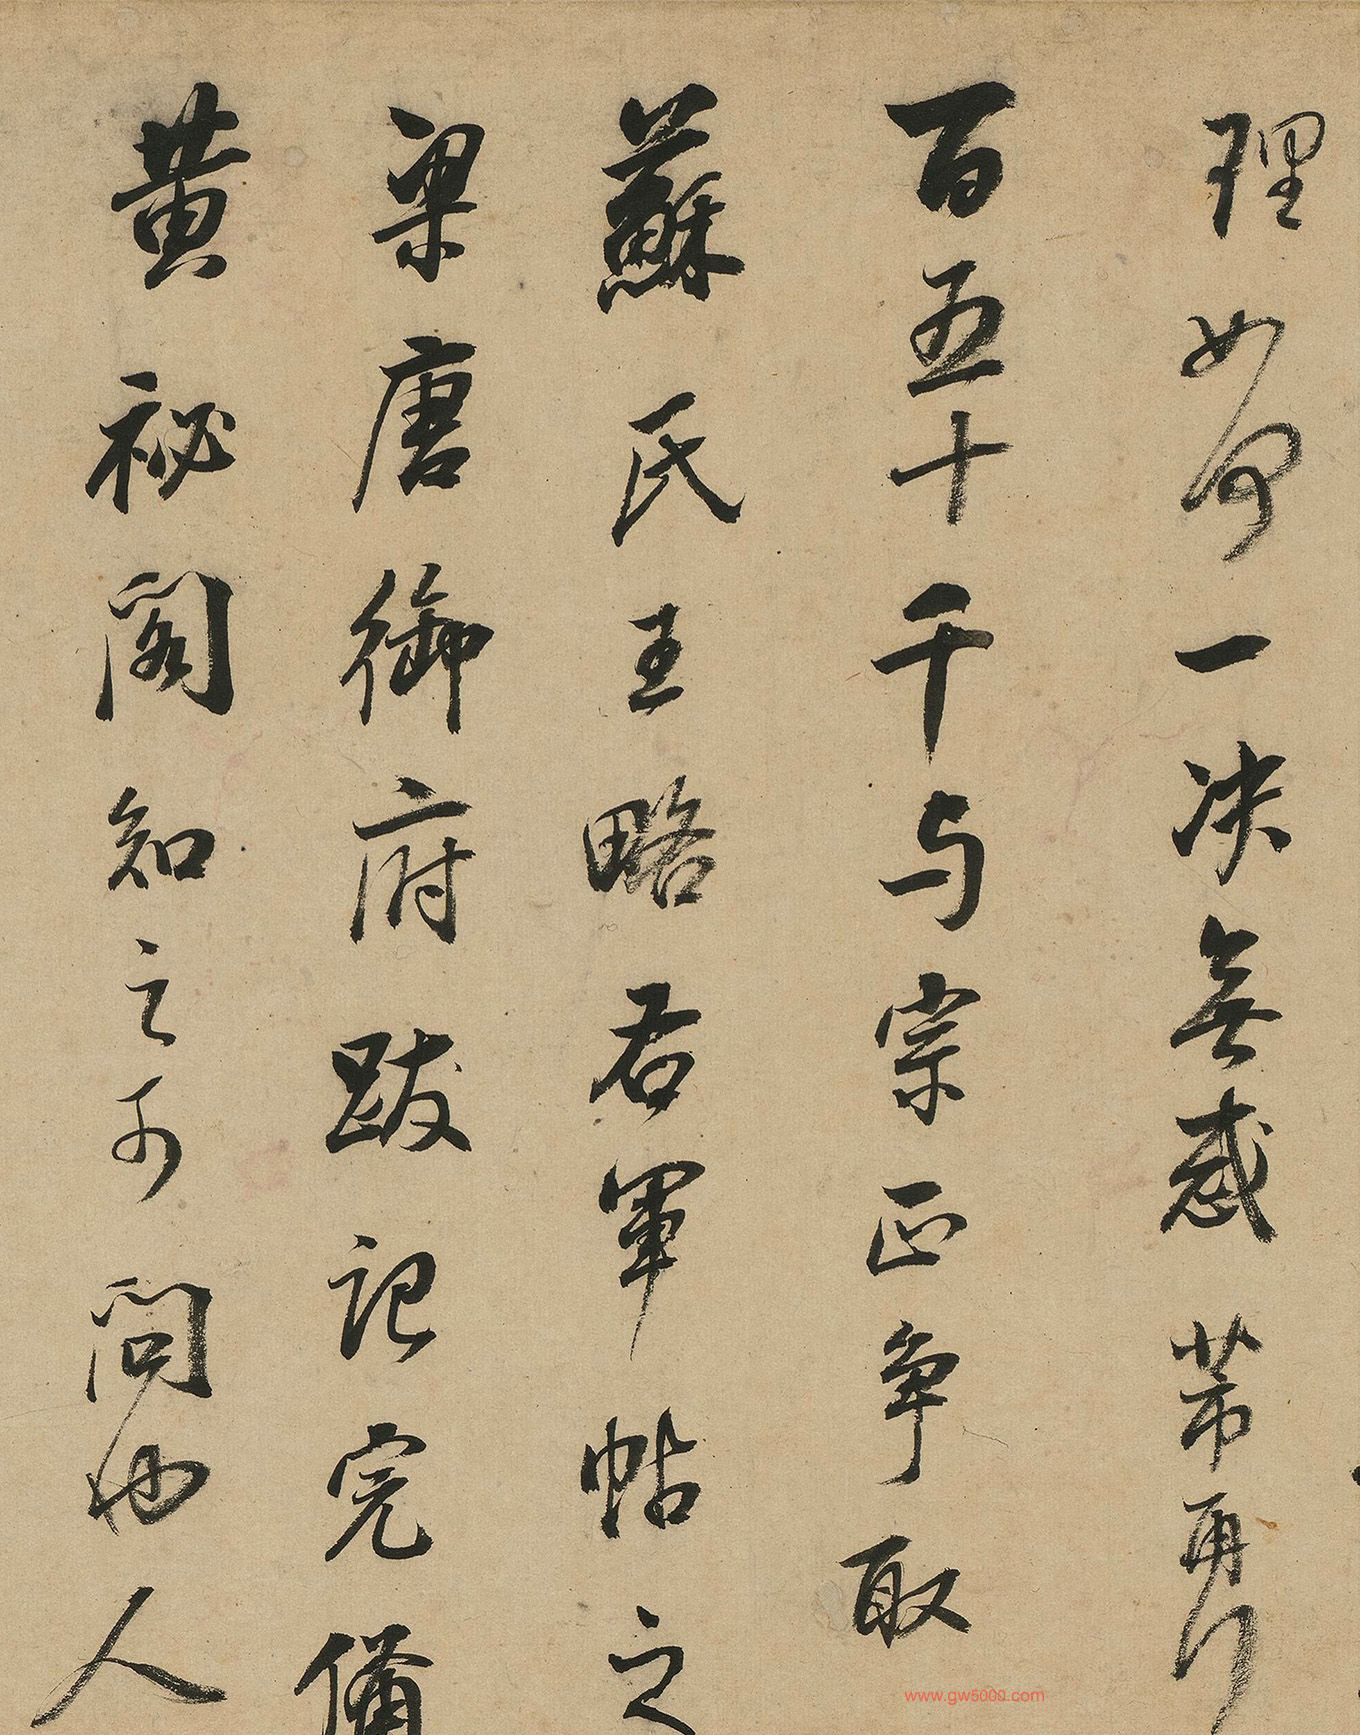 理如何一決無惑芾再行
百五十千与宗正争取
蘇氏王略右軍帖之
梁唐御府跋記完備
黄秘閣知之可問也人
www.gw5000.com